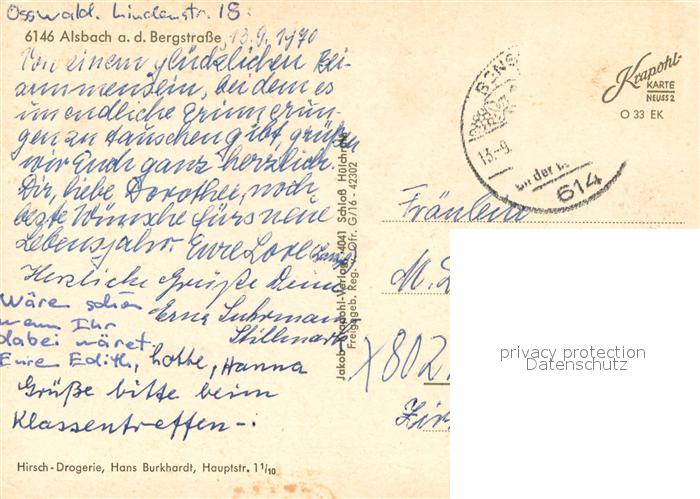 Osswald. Lindenstr. 18.
6146 Alsbach a. d. Bergstraße 13.9.1970
Von einem glücklichen Bei-
sammensein, bei dem es
unendliche Erinnerun-
gen zu tauschen gibt, grüßen
wir Euch ganz herzlich.
Dir, liebe Dorothee, noch
beste Wünsche fürs neue
Lebensjahr Eure Lore
Herzliche Grüße Deine
Erna Fuhrmann
Stillmark
Wären schön
wenn Ihr
dabei wäret.
Eure Edith, Lotte, Hanna
Grüße bitte beim
Klassentreffen –.
Hirsch-Drogerie, Hans Burkhardt, Hauptstr. 1 1/10
Jakob Krapohl-Verlag, 4041 Schloß Hülchrath
Freigegeb. Reg. Ofr. G/16 - 42302
Krapohl-
KARTE
NEUSS 2
O 33 EK
BENS
13.-9.
an der B
614
Fräulein
M. D
802
Zir
privacy protection
Datenschutz